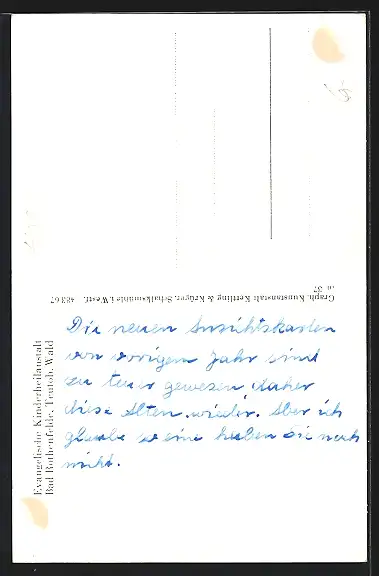 Die neuen Ansichtskarten
von vorigem Jahr sind
zu teuer gewesen daher
diese Alten wieder. Aber ich
glaube so eine haben Sie noch
nicht.
Evangelische Kinderheilanstalt
Bad Rothenfelde, Teutob. Wald
Graph. Kunstanstalt Kettling & Krüger, Schalksmühle i. Westf. 48367